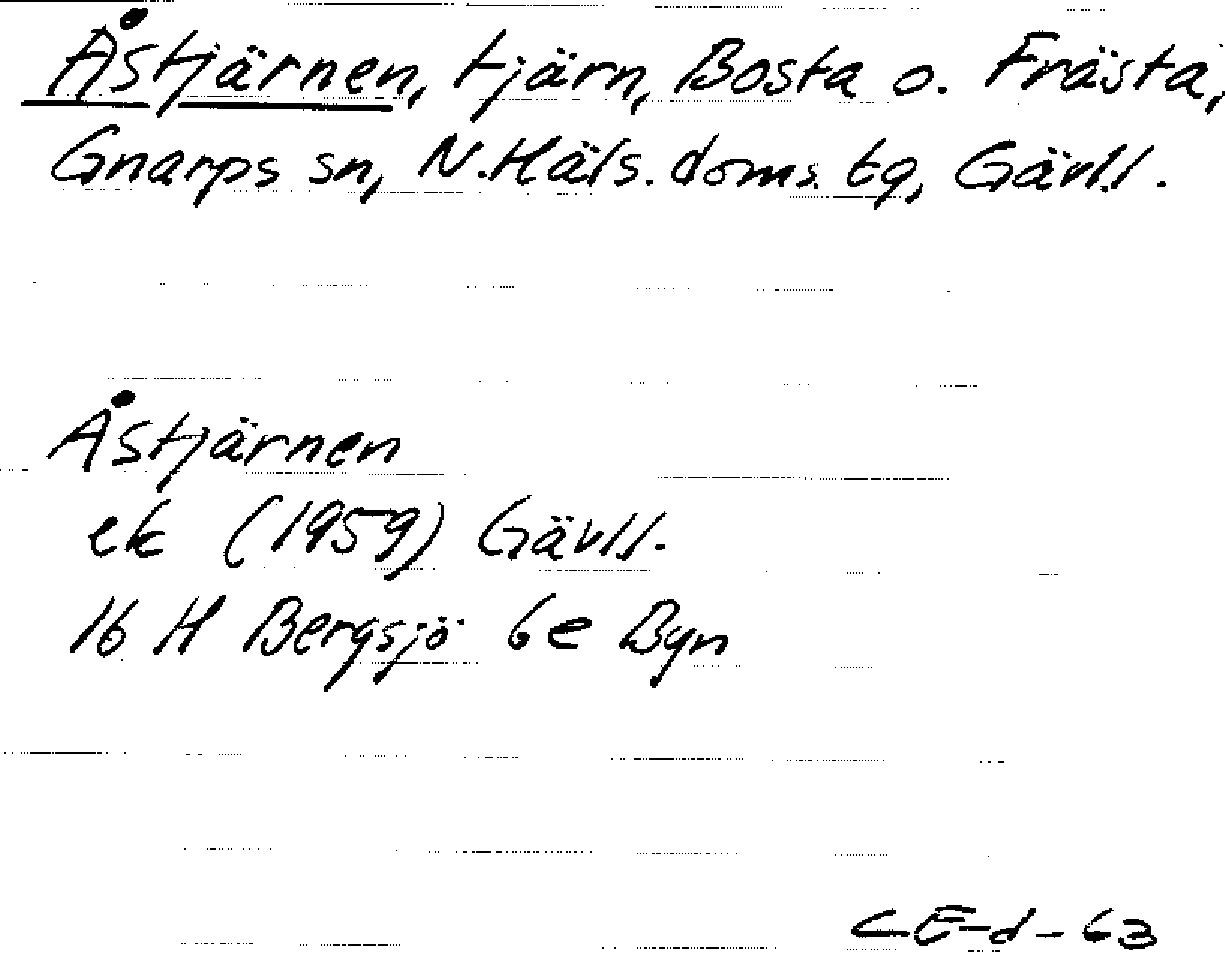 Åstjärnen, tjärn, Bosta o. Frästa,
Gnarps sn, N.Häls.doms.tg, Gävl.l.
Åstjärnen
ek (1959) Gävl.l.
16 H Bergsjö 6e Byn
CE-d-63